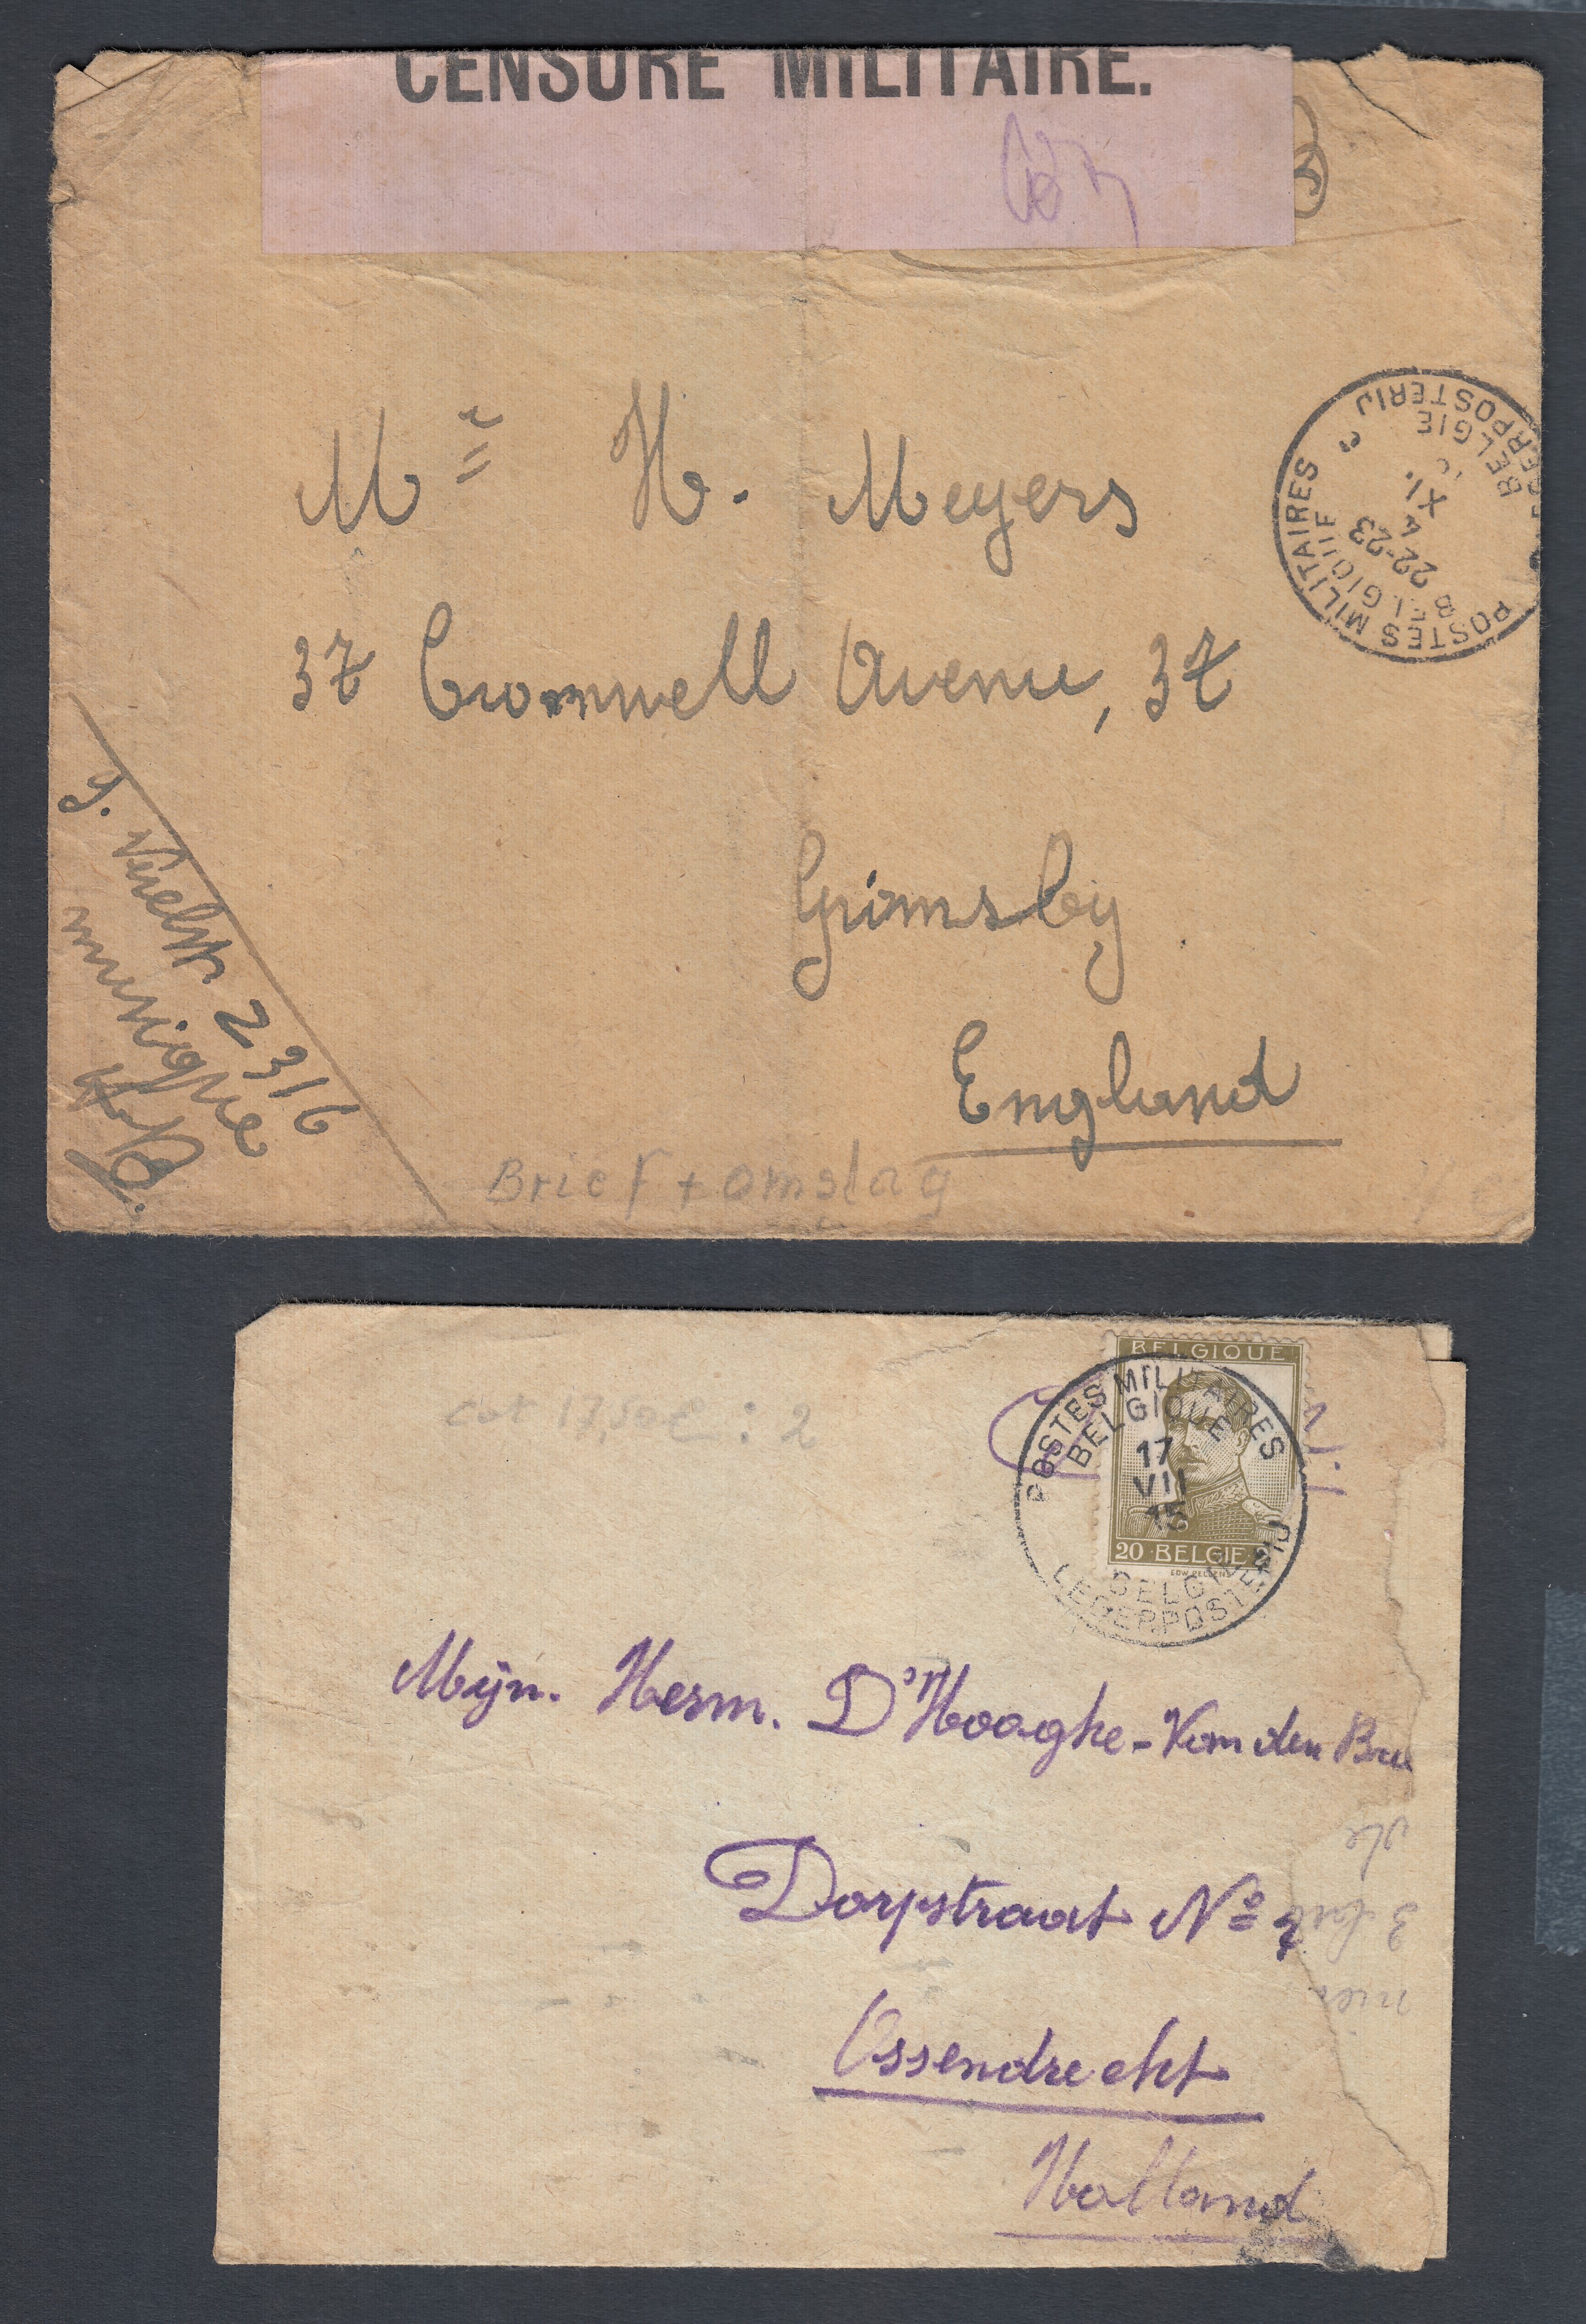 CENSURE MILITAIRE.
Mr H. Meyers
37 Cromwell Avenue, 37
Grimsby
England
POSTES MILITAIRES
BELGIQUE
22-23
4
XI.
BELGIE
LEGERPOSTERIJ
J. Verelst 2316
musique
Brief + omslag
cat 17,50 € : 2
BELGIQUE
20 BELGIE 20
POSTES MILITAIRES
BELGIQUE
17
VII
15
BELGIE
LEGERPOSTERIJ
Mijn. Herm. D'Hooghe-Van den Bru
Dorpstraat No 7
Ossendrecht
Holland